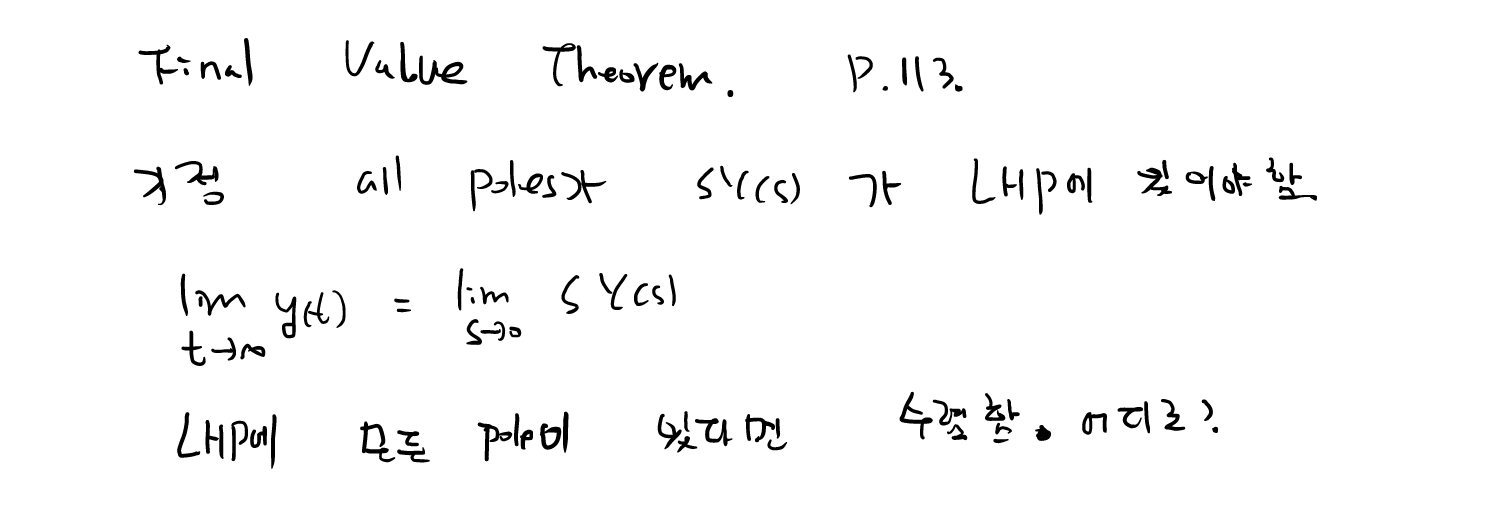 Final Value Theorem. P.113.
가정 all poles가 sY(s) 가 LHP에 있어야함
lim y(t) = lim sY(s)
t→∞ s→0
LHP에 모든 pole이 있다면 수렴함. 어디로?